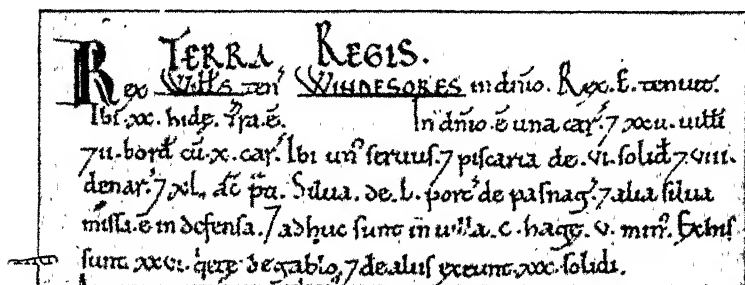 TERRA REGIS.
Rex Wills ten' WINDESORES in dnio. Rex. E. tenuit.
Ibi xx. hide. Tra. ē. In dnio. ē una car'. 7 xxii. uilli
7 ii. bord' cū. x. car'. Ibi un' seruus. 7 piscaria de. vi. solid' 7 viii.
denar'. 7 xl. ac pti. Silua. de. L. porc' de pasnag'. 7 alia silua
missa. ē in defensa. 7 adhuc sunt in uilla. c. hagæ. v. min'. Ex his
sunt. xxvi. qete de gablo. 7 de aliis exeunt. xxx. solidi.